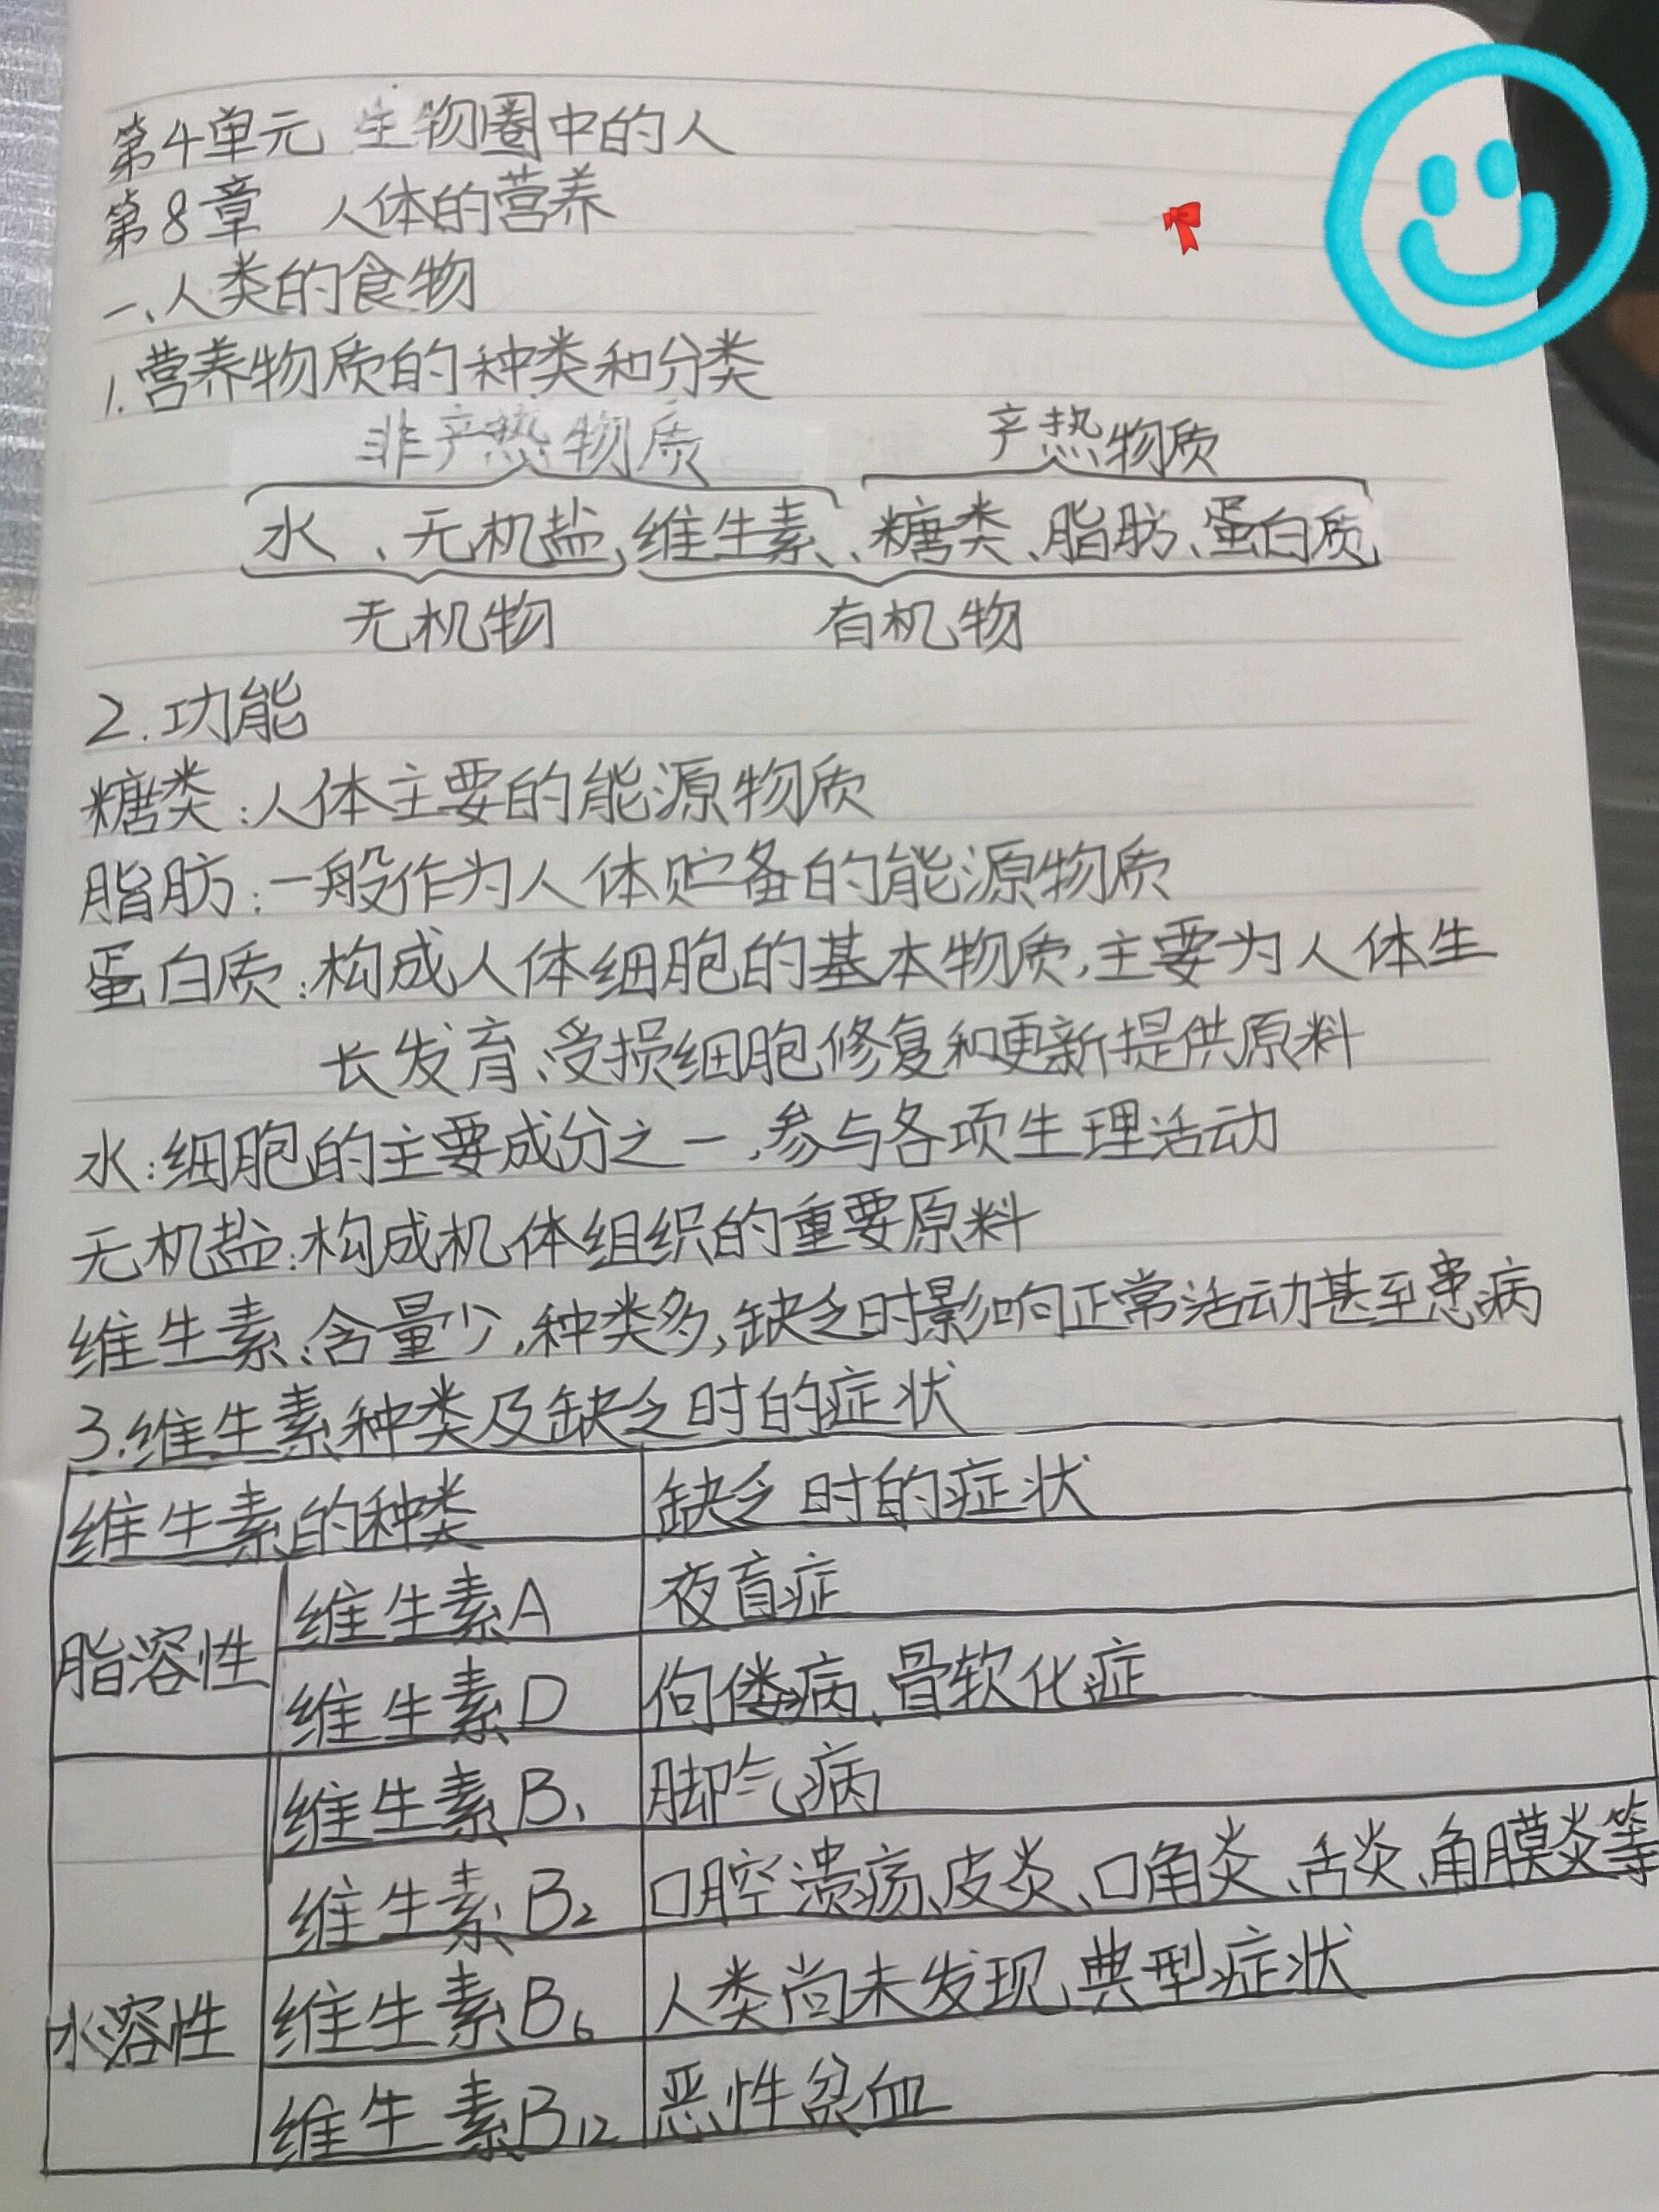 第4单元 生物圈中的人
第8章 人体的营养
一、人类的食物
1.营养物质的种类和分类
非产热物质 产热物质
水、无机盐、维生素、糖类、脂肪、蛋白质
无机物 有机物
2.功能
糖类:人体主要的能源物质
脂肪:一般作为人体贮备的能源物质
蛋白质:构成人体细胞的基本物质,主要为人体生
长发育、受损细胞修复和更新提供原料
水:细胞的主要成分之一,参与各项生理活动
无机盐:构成机体组织的重要原料
维生素:含量少,种类多,缺乏时影响正常活动甚至患病
3.维生素种类及缺乏时的症状
维生素的种类 缺乏时的症状
脂溶性 维生素A 夜盲症
维生素D 佝偻病、骨软化症
水溶性 维生素B₁ 脚气病
维生素B₂ 口腔溃疡、皮炎、口角炎、舌炎、角膜炎等
维生素B₆ 人类尚未发现典型症状
维生素B₁₂ 恶性贫血